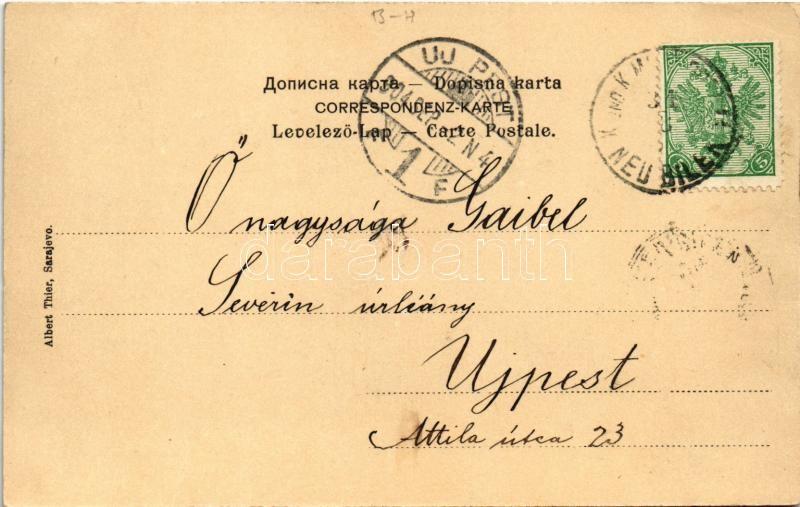 B-H
Дописна карта — Dopisna karta
CORRESPONDENZ-KARTE
Levelező-Lap — Carte Postale.
UJ PEST
N 4
1
F
K. UND K. MIL. POST
NEU BILEK
5
Ő nagysága Gaibel
Severin úrleány
Ujpest
Attila útca 23
Albert Thier, Sarajevo.
darabanth